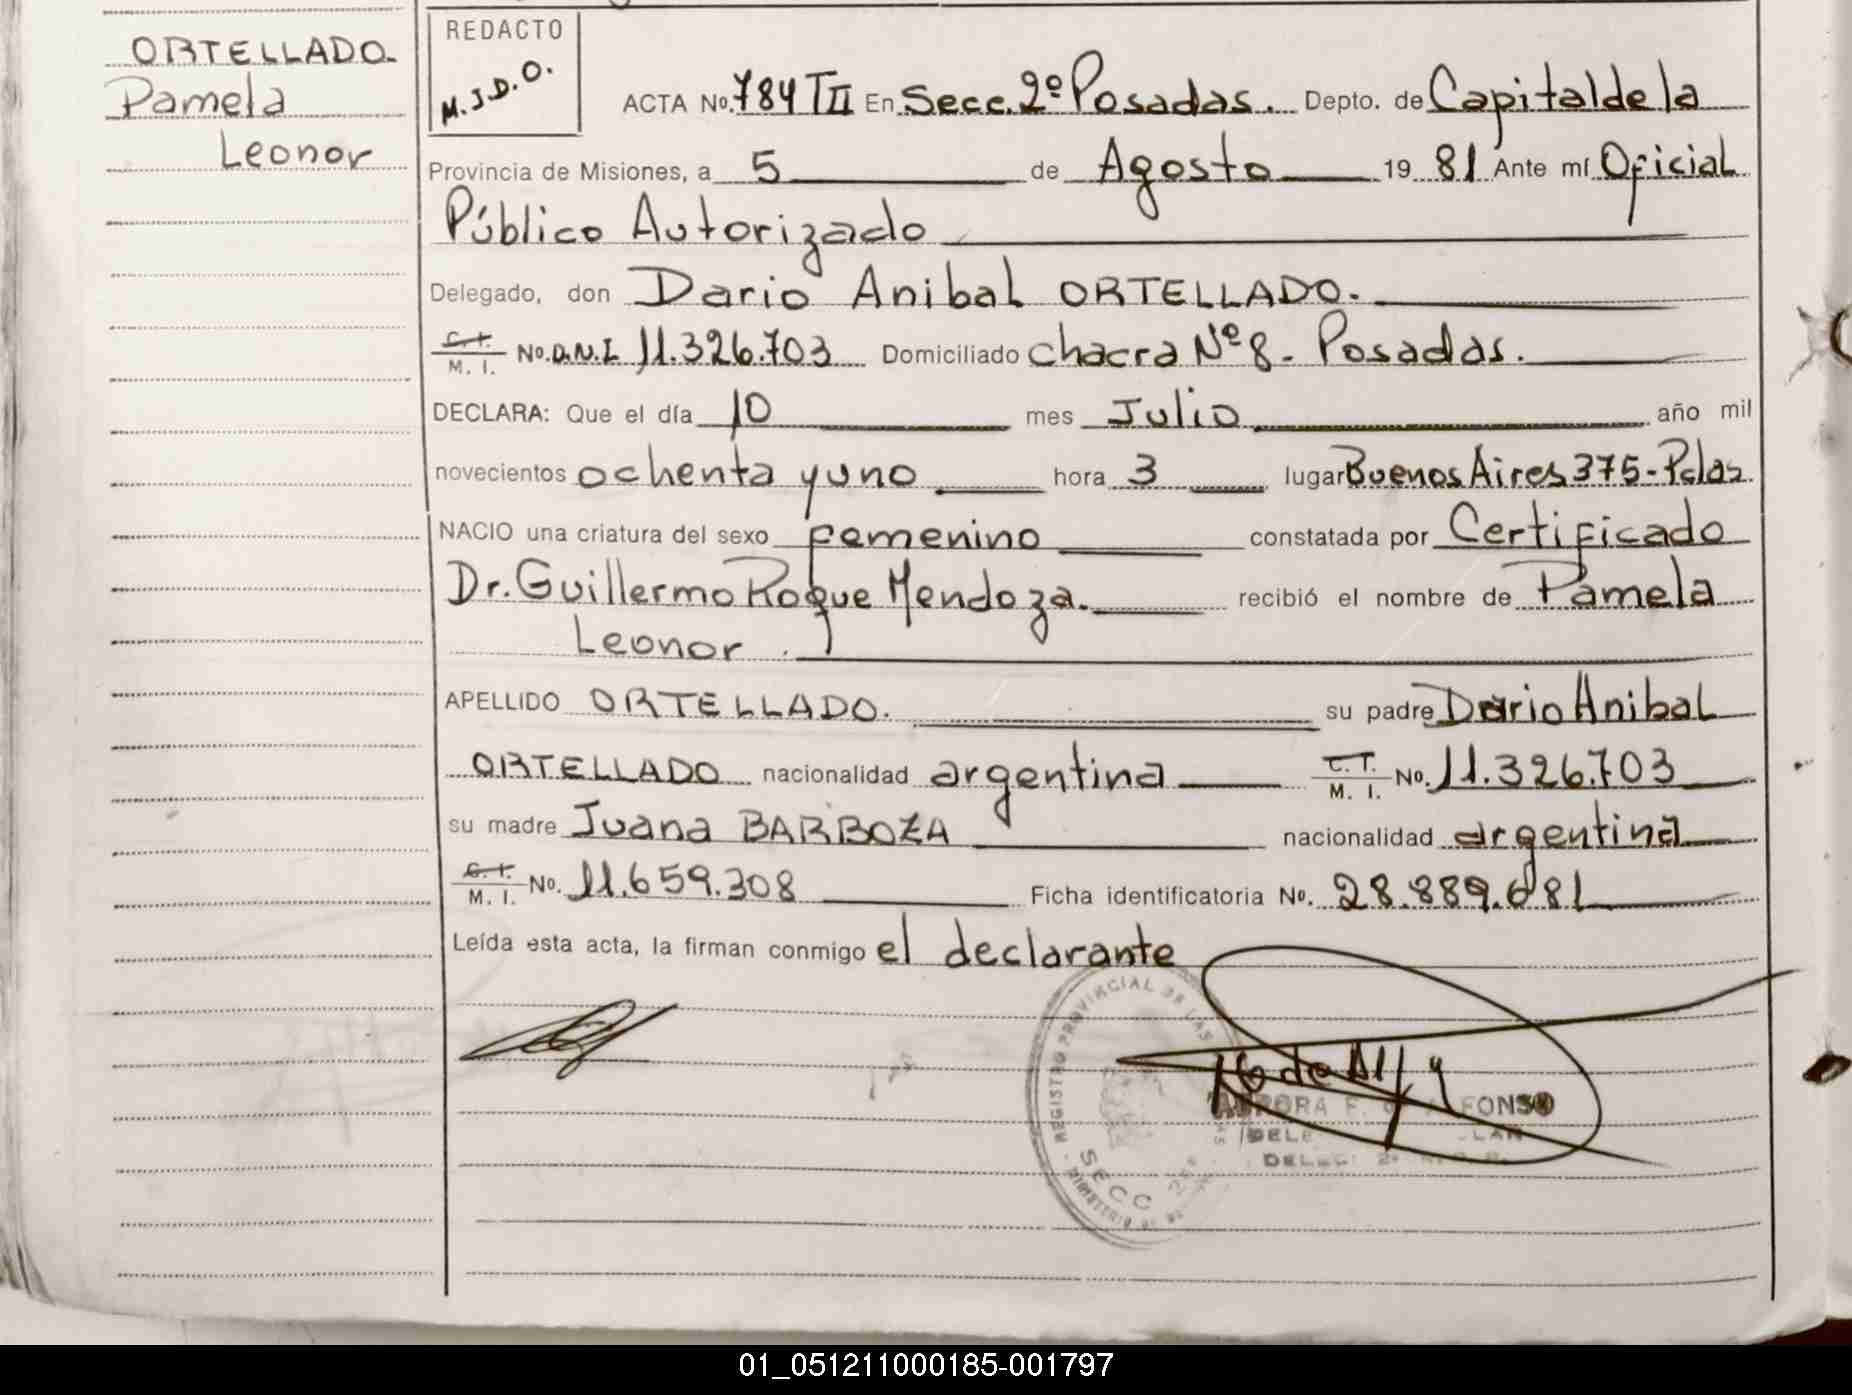 ORTELLADO.
Pamela
Leonor
REDACTO
M.J.D.O.
ACTA No. 784 TII En Secc. 2º Posadas. Depto. de Capital de la
Provincia de Misiones, a 5 de Agosto 19 81 Ante mí Oficial
Público Autorizado
Delegado, don Dario Anibal ORTELLADO.
C. I. M. I. No. D.N.I. 11.326.703 Domiciliado chacra Nº 8 - Posadas.
DECLARA: Que el día 10 mes Julio año mil
novecientos ochenta y uno hora 3 lugar Buenos Aires 375 - Pdas.
NACIO una criatura del sexo femenino constatada por Certificado
Dr. Guillermo Roque Mendoza. recibió el nombre de Pamela
Leonor.
APELLIDO ORTELLADO. su padre Dario Anibal
ORTELLADO nacionalidad argentina C. I. M. I. No. 11.326.703
su madre Juana BARBOZA nacionalidad argentina
C. I. M. I. No. 11.659.308 Ficha identificatoria No. 28.889.081
Leída esta acta, la firman conmigo el declarante
REGISTRO PROVINCIAL DE LAS
SECC
FONSO
01_051211000185-001797